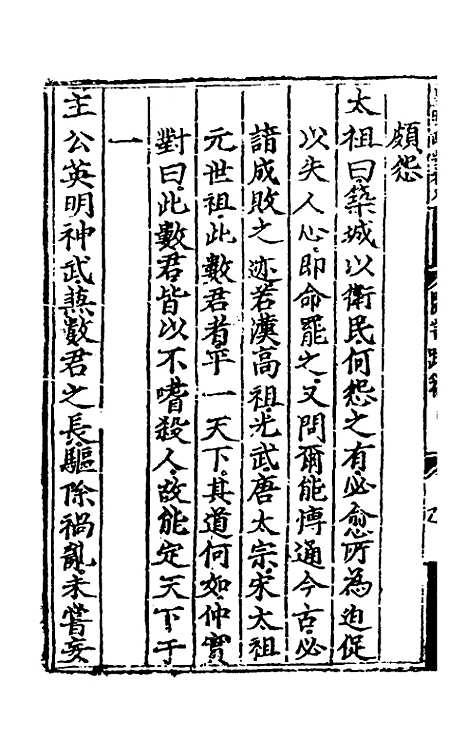 頗怨
太祖曰築城以衛民何怨之有必愈所為迫促
以失人心即命罷之又問爾能博通今古必
諳成敗之迹若漢高祖光武唐太宗宋太祖
元世祖此數君者平一天下其道何如仲實
對曰此數君皆以不嗜殺人故能定天下于
一
主公英明神武兼數君之長驅除禍亂未嘗妄